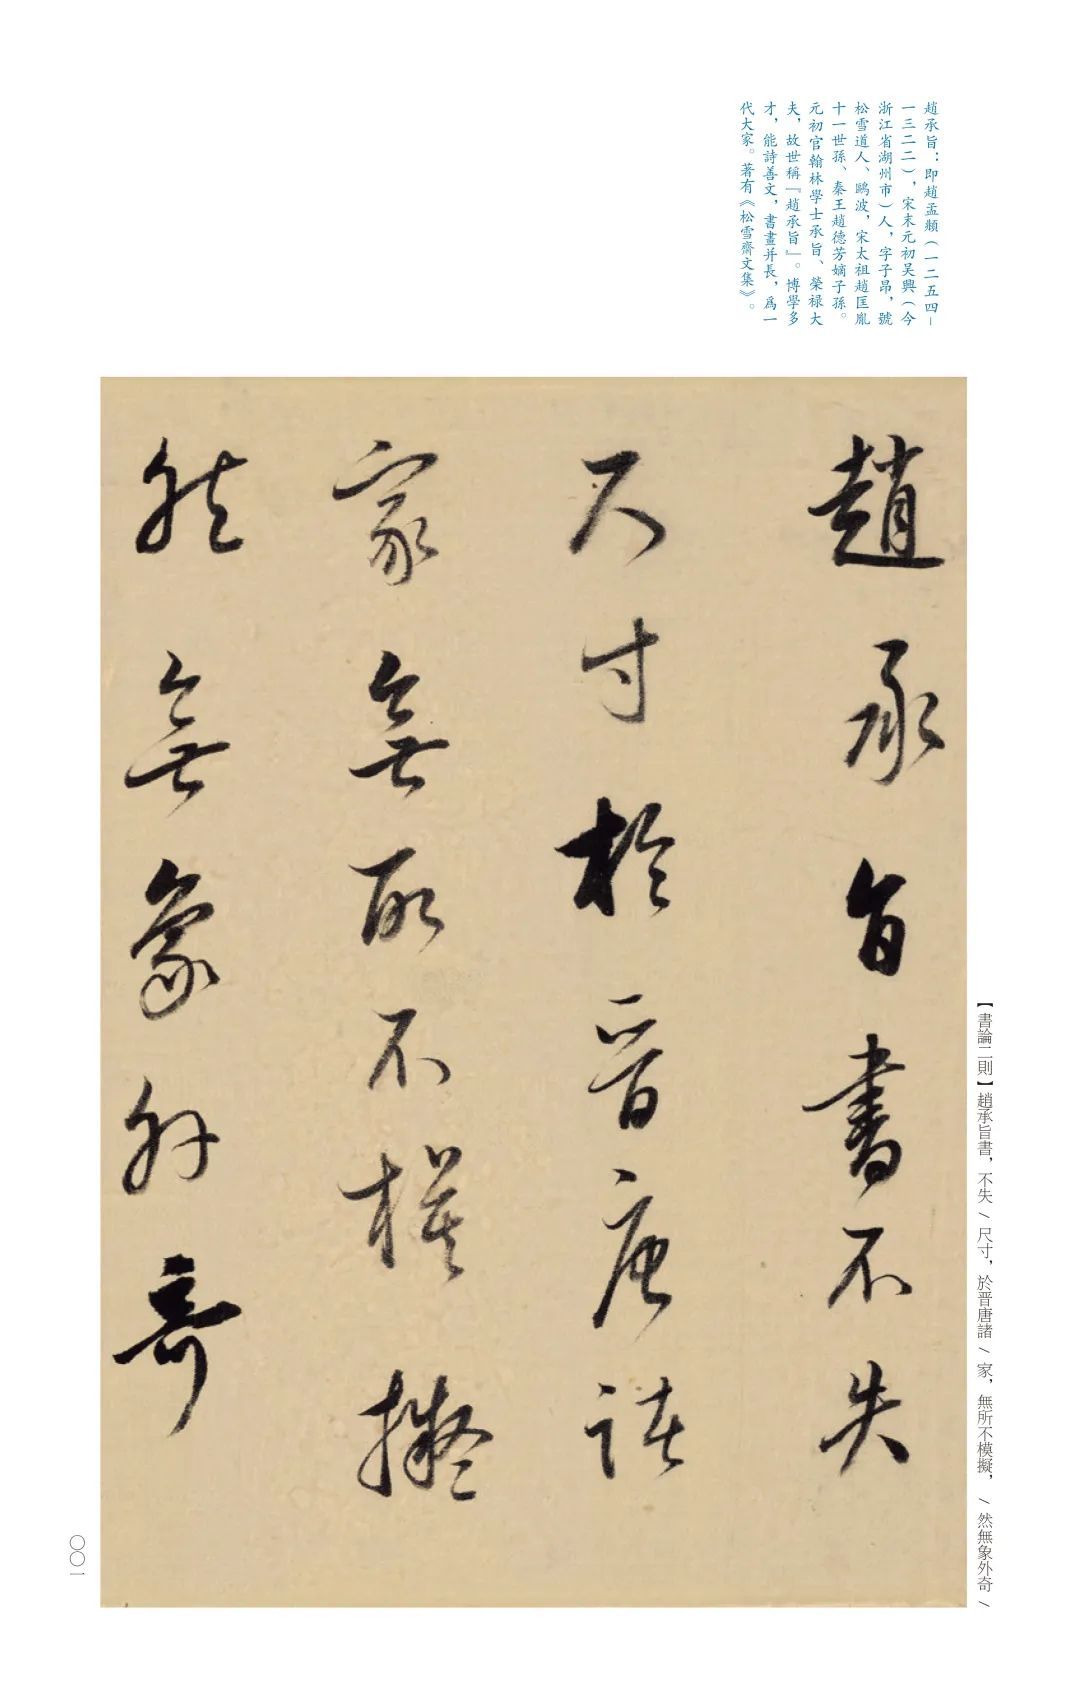 趙承旨：即趙孟頫（一二五四—
一三二二），宋末元初吴興（今
浙江省湖州市）人，字子昂，號
松雪道人、鷗波，宋太祖趙匡胤
十一世孫、秦王趙德芳嫡子孫。
元初官翰林學士承旨、榮禄大
夫，故世稱『趙承旨』。博學多
才，能詩善文，書畫并長，爲一
代大家。著有《松雪齋文集》。
趙承旨書不失
尺寸於晋唐諸
家無所不模擬
然無象外奇
【書論二則】趙承旨書，不失/尺寸，於晋唐諸/家，無所不模擬，/然無象外奇/
〇〇一